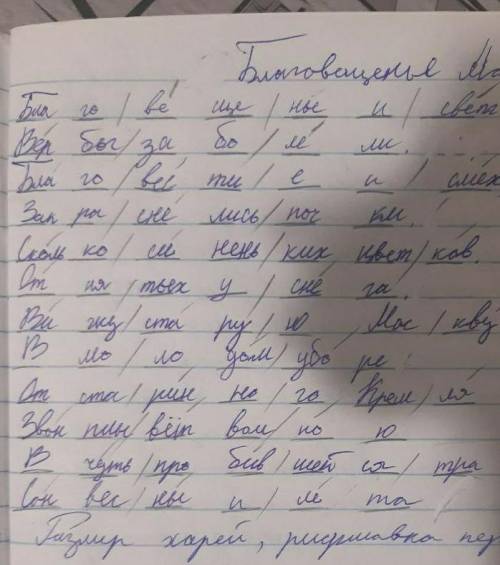 Благовещенье Мо
Бла го / ве ще / нье и / свет
Вер бы / за бо / ле ли.
Бла го / вес ти / е и / смех
Зак ра / сне лись / поч ки.
Сколь ко / си нень / ких цвет / ков.
От ня / тых у / сне га.
Ви жу / ста ру / ю Мос / кву
В мо / ло дом / убо ре
От ста / рин но / го Крем / ля
Звон плы / вёт вол / но ю
В чуть / про бив / шей ся / тра
Сон вес / ны и / ле та
Размер хорей, рифмовка пер